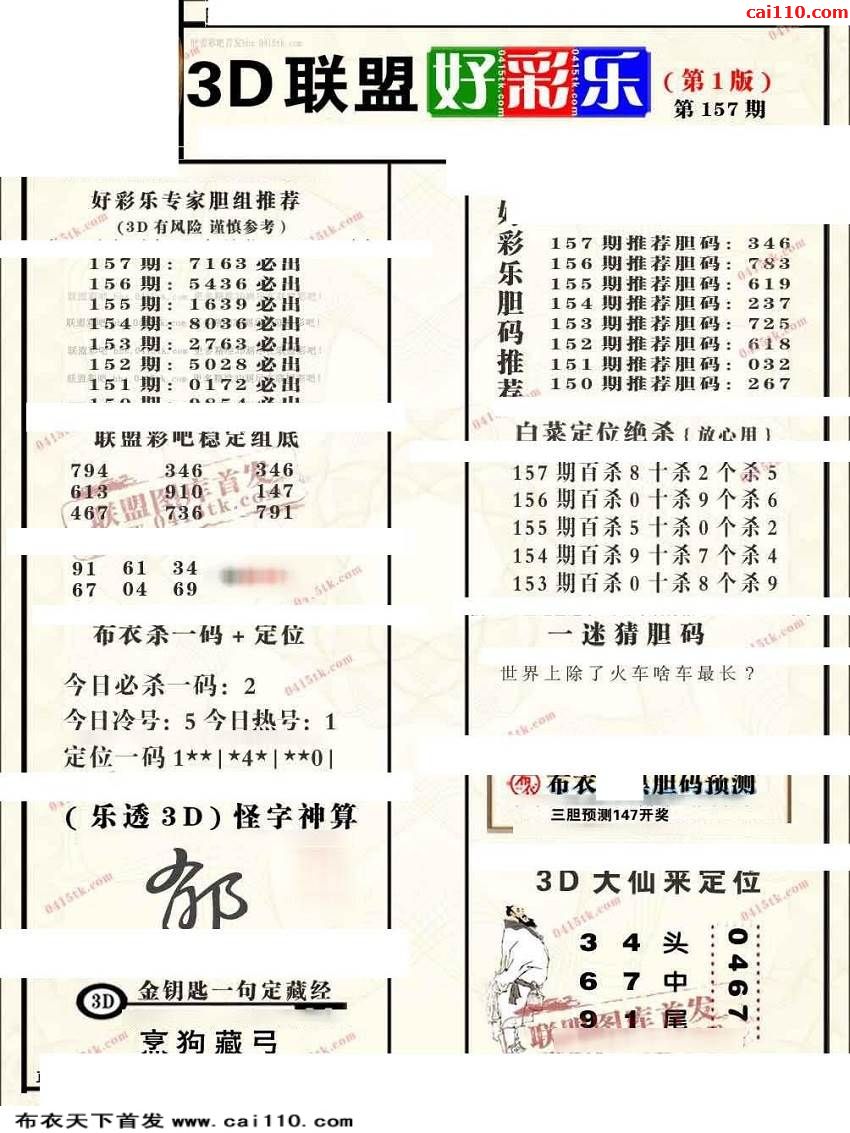 cai110.com
3D联盟好彩乐(第1版)
第157期
好彩乐专家胆组推荐
(3D有风险 谨慎参考)
157期: 7163必出
156期: 5436必出
155期: 1639必出
154期: 8036必出
153期: 2763必出
152期: 5028必出
151期: 0172必出
150期: 9854必出
联盟彩吧稳定组底
794 346 346
613 910 147
467 736 791
91 61 34
67 04 69
布衣杀一码+定位
今日必杀一码: 2
今日冷号: 5 今日热号: 1
定位一码1**|*4*|**0|
(乐透3D)怪字神算
郁
3D 金钥匙一句定藏经
烹狗藏弓
好彩乐胆码推荐
157期推荐胆码: 346
156期推荐胆码: 783
155期推荐胆码: 619
154期推荐胆码: 237
153期推荐胆码: 725
152期推荐胆码: 618
151期推荐胆码: 032
150期推荐胆码: 267
白菜定位绝杀{放心用}
157期百杀8十杀2个杀5
156期百杀0十杀9个杀6
155期百杀5十杀0个杀2
154期百杀9十杀7个杀4
153期百杀0十杀8个杀9
一迷猜胆码
世界上除了火车啥车最长?
布衣 胆码预测
三胆预测147开奖
3D大仙来定位
3 4 头
6 7 中
9 1 尾
0467
联盟图库首发
0415tk.com
布衣天下首发 www.cai110.com